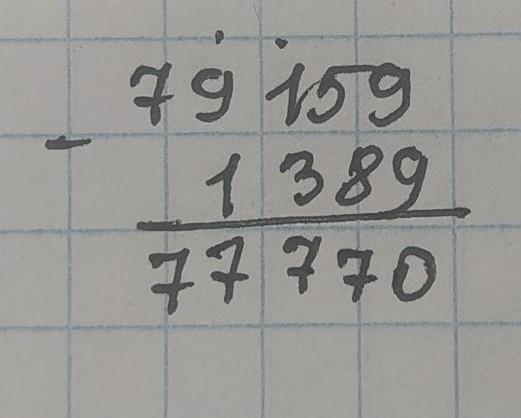 79 159
-
1 389
77 770